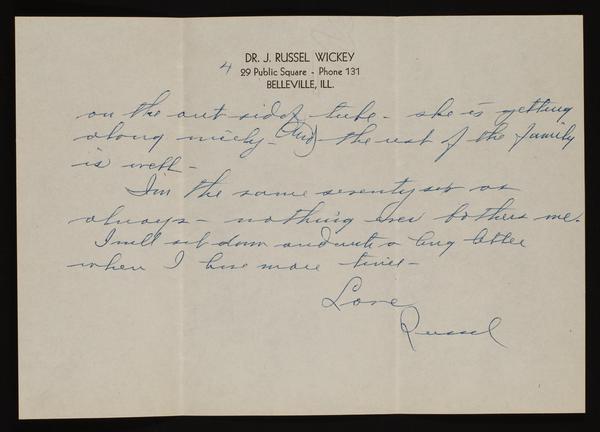 DR. J. RUSSEL WICKEY
4
29 Public Square - Phone 131
BELLEVILLE, ILL.
on the out side of tube - she is getting
along nicely - (And) the rest of the family
is well -
I'm the same as
always - nothing ever bothers me.
I will sit down and write a long letter
when I have more time -
Love
Russel